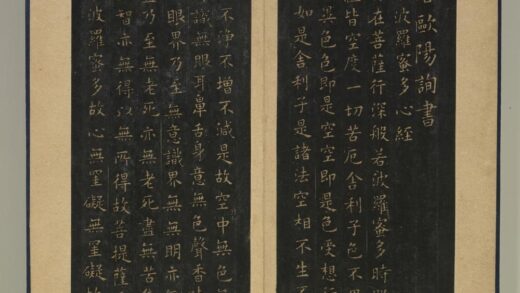 歐陽詢書
波羅蜜多心經
在菩薩行深般若波羅蜜多時
皆空度一切苦厄舍利子色不
異色色即是空空即是色受想
如是舍利子是諸法空相不生
不淨不增不減是故空中無色
識無眼耳鼻舌身意無色聲香
眼界乃至無意識界無無明亦
乃至無老死亦無老死盡無苦
智亦無得以無所得故菩提薩
波羅蜜多故心無罣礙無罣礙